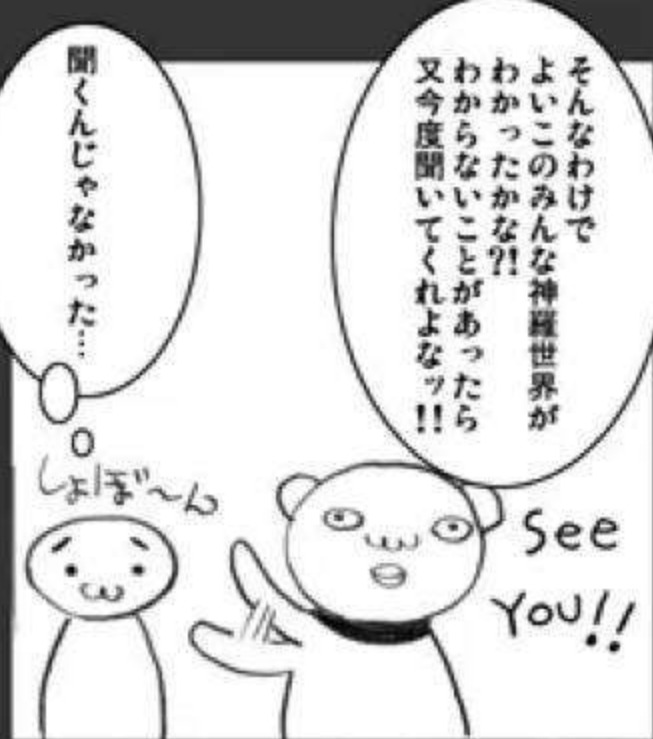 そんなわけで
よいこのみんな神羅世界が
わかったかな?!
わからないことがあったら
又今度聞いてくれよなッ!!
聞くんじゃなかった…
しょぼ〜ん
See
YOU!!